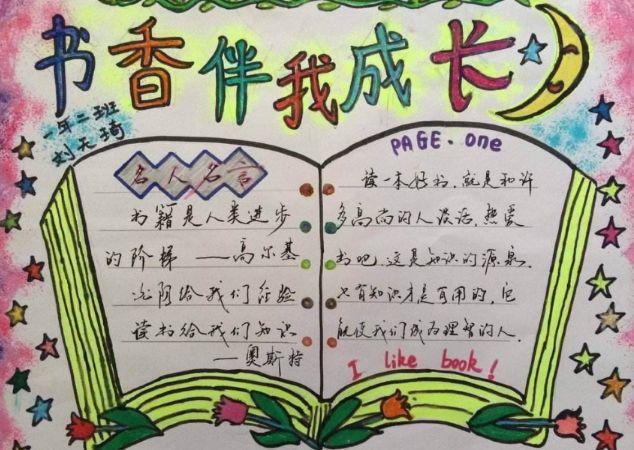 书香伴我成长
一年二班
刘天琦
名人名言
书籍是人类进步
的阶梯 ——高尔基
光阴给我们经验
读书给我们知识
——奥斯特
PAGE·one
读一本好书,就是和许
多高尚的人谈话,热爱
书吧,这是知识的源泉,
只有知识才是有用的,它
能使我们成为理智的人.
I like book!